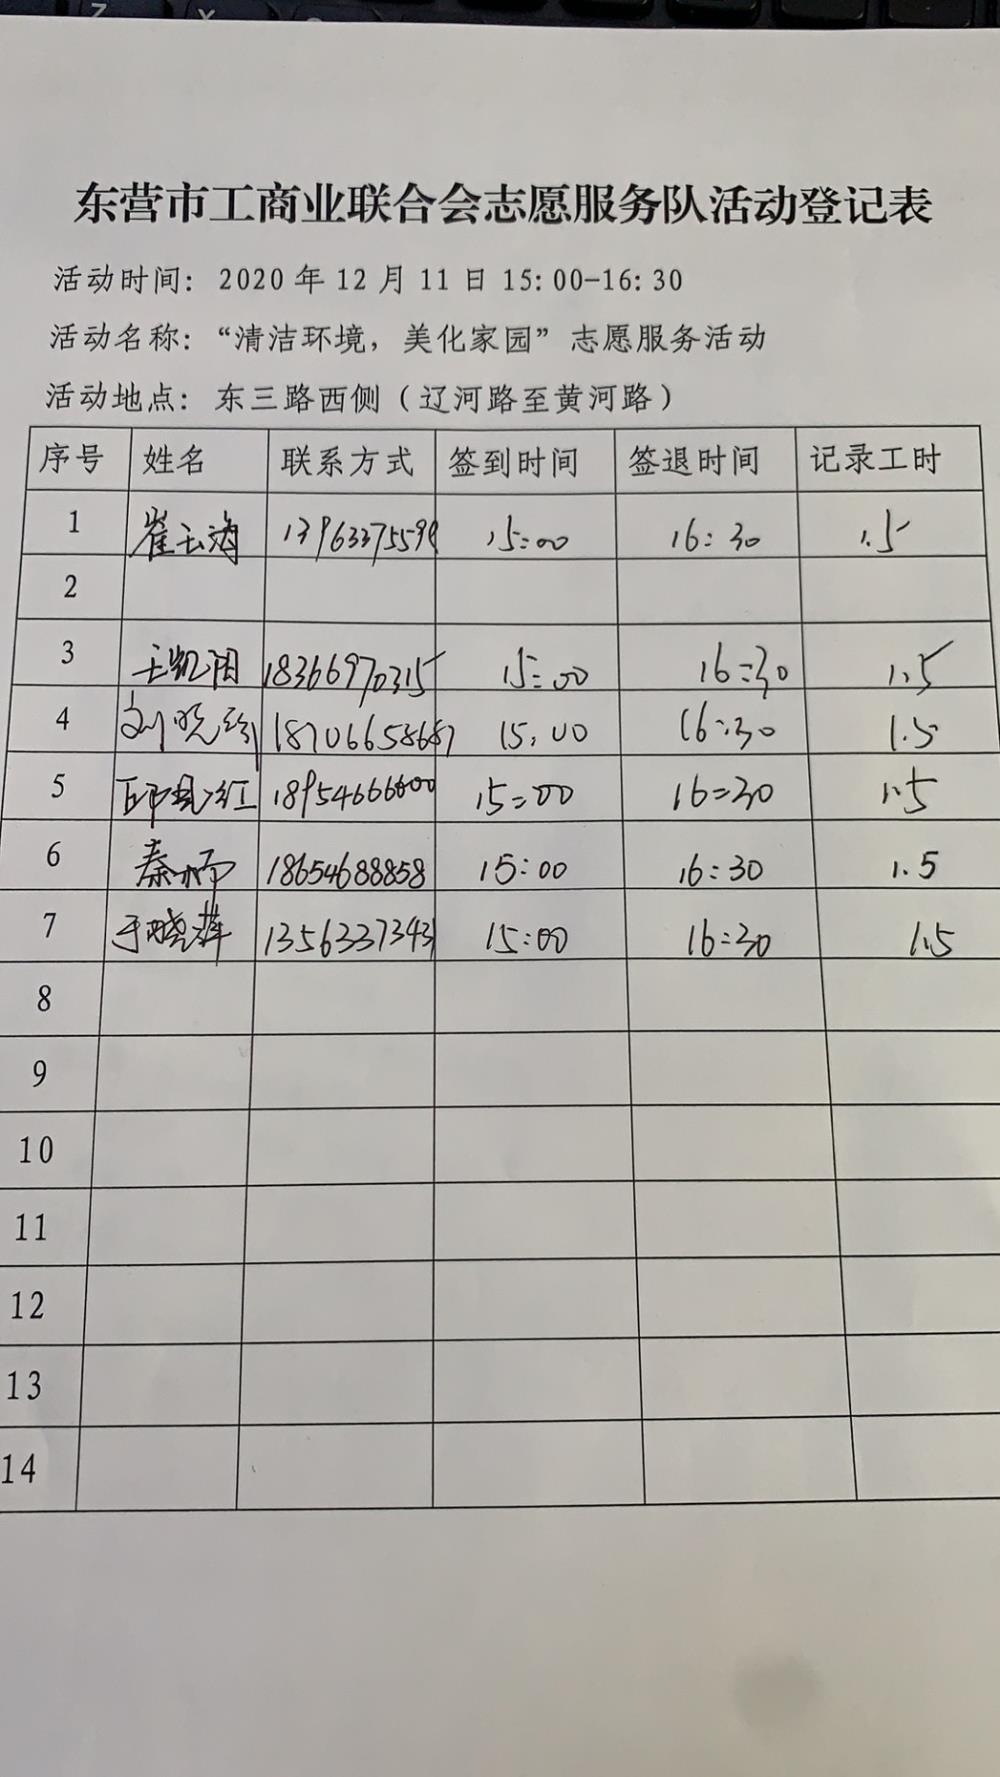 东营市工商业联合会志愿服务队活动登记表
活动时间：2020年12月11日15:00-16:30
活动名称：“清洁环境，美化家园”志愿服务活动
活动地点：东三路西侧（辽河路至黄河路）
序号 姓名 联系方式 签到时间 签退时间 记录工时
1 崔玉海 13963375599 15:00 16:30 1.5
2
3 王凯阳 18366970315 15:00 16:30 1.5
4 刘晓 18706658687 15:00 16:30 1.5
5 红 18954666600 15:00 16:30 1.5
6 秦 18654688858 15:00 16:30 1.5
7 于晓萍 13563373431 15:00 16:30 1.5
8
9
10
11
12
13
14